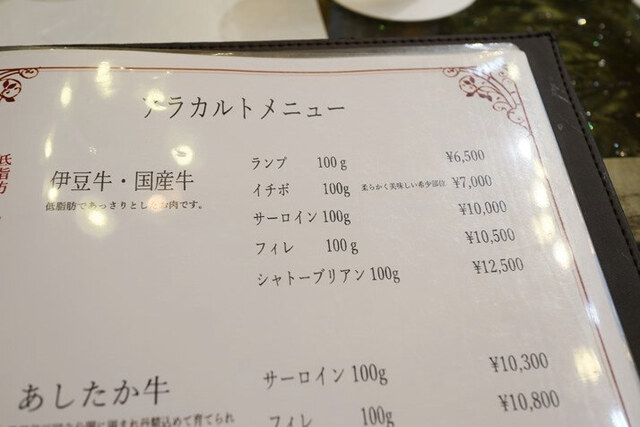 アラカルトメニュー
低脂肪
伊豆牛・国産牛
低脂肪であっさりとしたお肉です。
ランプ 100g ¥6,500
イチボ 100g 柔らかく美味しい希少部位 ¥7,000
サーロイン 100g ¥10,000
フィレ 100g ¥10,500
シャトーブリアン 100g ¥12,500
あしたか牛
サーロイン 100g ¥10,300
フィレ 100g ¥10,800
に育まれ丹精込めて育てられ